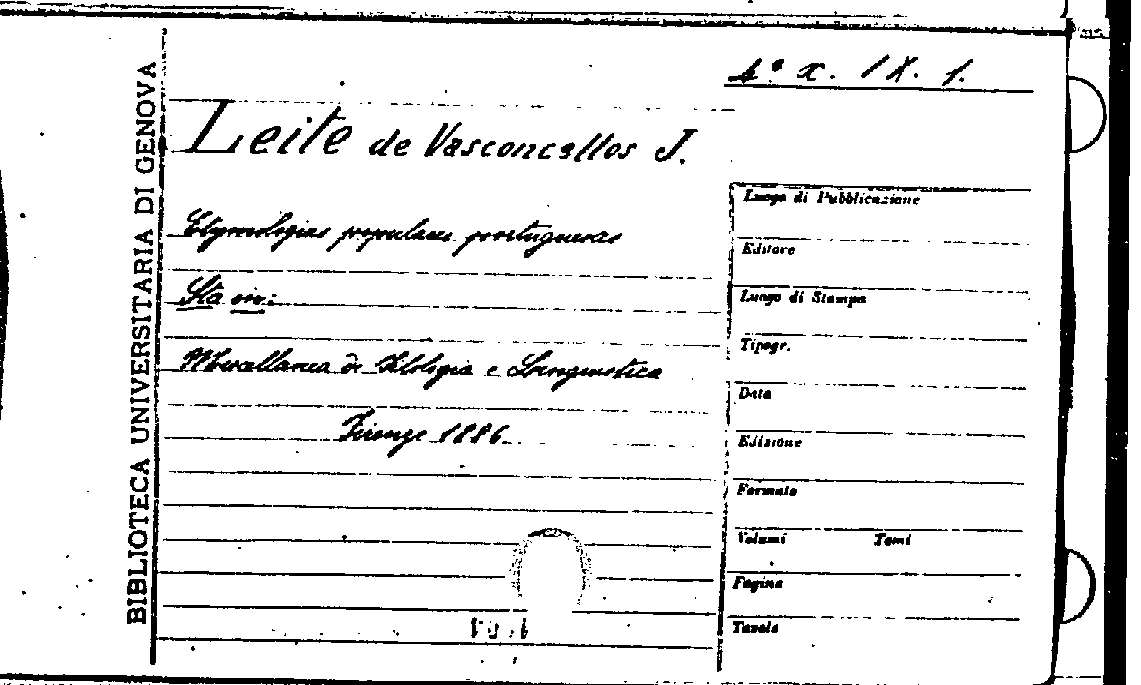 4° X. IX. 1.
BIBLIOTECA UNIVERSITARIA DI GENOVA
Leite de Vasconcellos J.
Etymologias populares portuguesas
Sta in:
Miscellanea di Filologia e Linguistica
Firenze 1886
Luogo di Pubblicazione
Editore
Luogo di Stampa
Tipogr.
Data
Edizione
Formato
Volumi Tomi
Pagine
Tavole